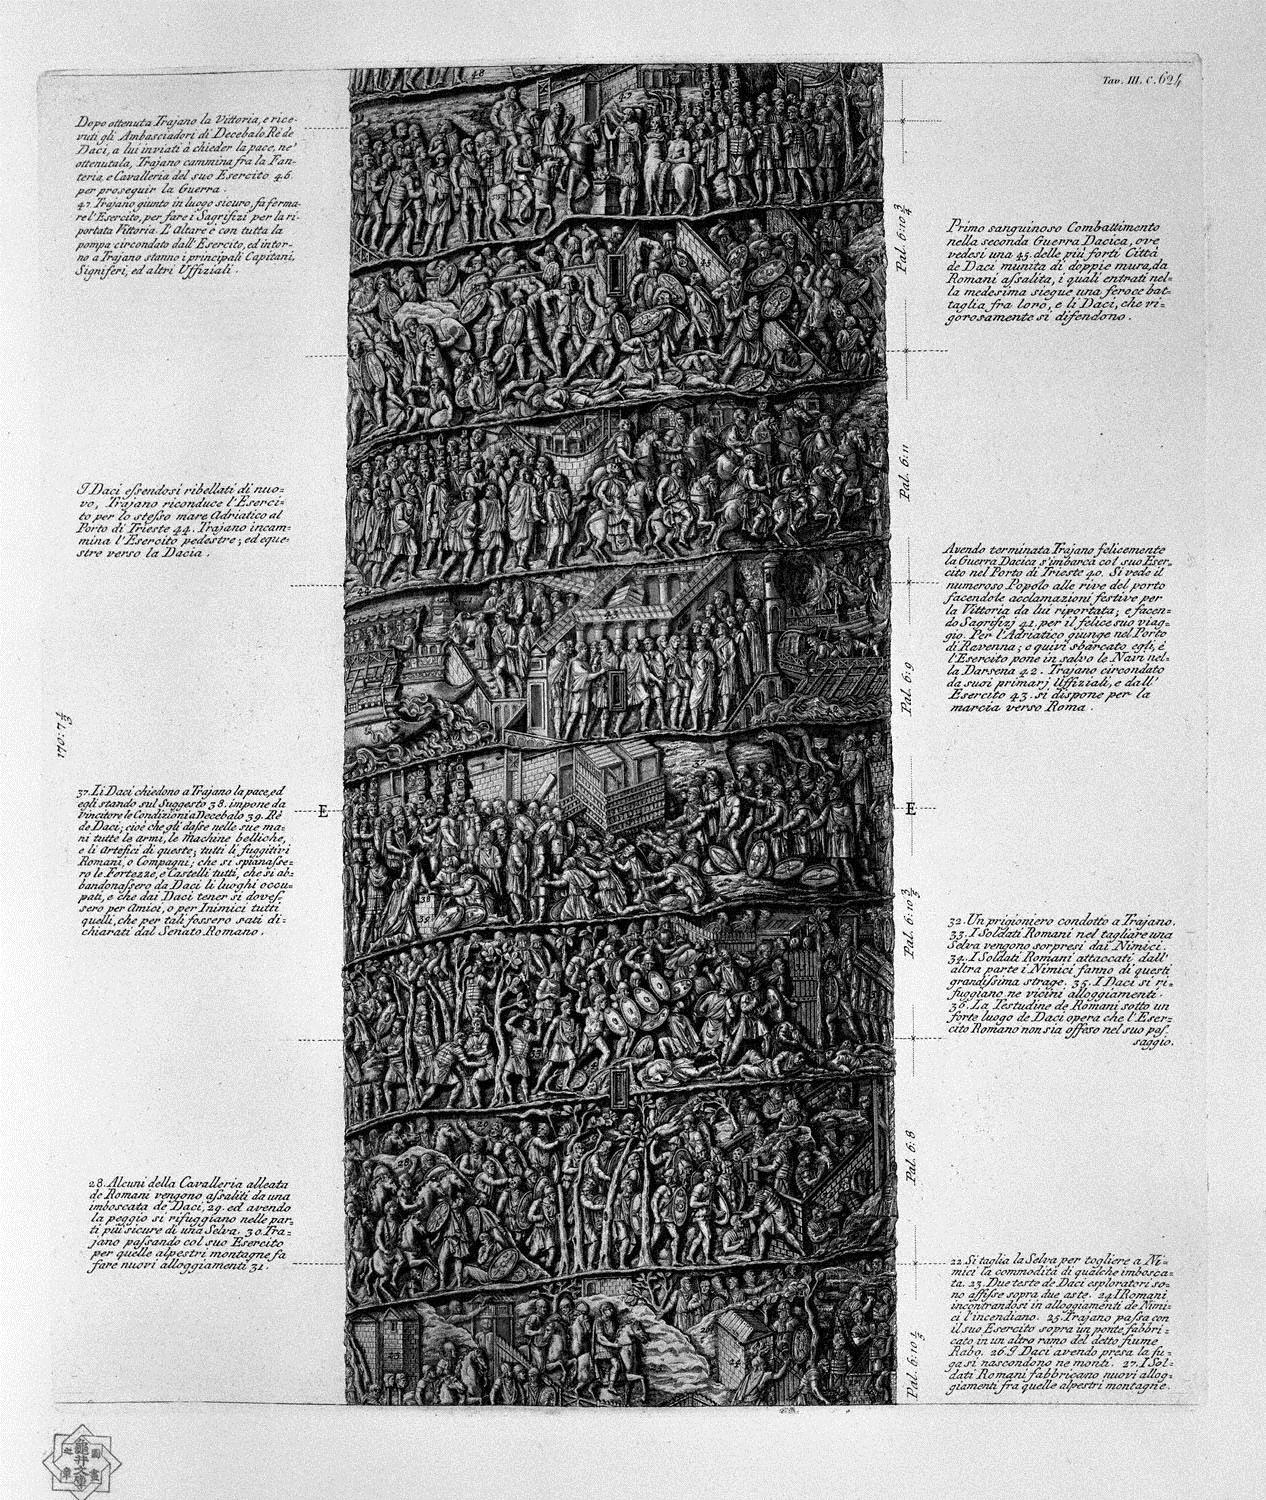 Tav. III. C. 624
Dopo ottenuta Trajano la Vittoria, e rice-
vuti gli Ambasciadori di Decebalo Rè de
Daci, a lui inviati à chieder la pace, ne'
ottenutala, Trajano cammina fra la Fan-
teria, e Cavalleria del suo Esercito 46.
per proseguir la Guerra.
47. Trajano giunto in luogo sicuro, fa ferma-
re l'Esercito, per fare i Sagrifizi per la ri-
portata Vittoria. L'Altare è con tutta la
pompa circondato dall'Esercito, ed intor-
no a Trajano stanno i principali Capitani,
Signiferi, ed altri Uffiziali.
Primo sanguinoso Combattimento
nella seconda Guerra Dacica, ove
vedesi una 45. delle più forti Città
de Daci munita di doppie mura, da
Romani assalita, i quali entrati nel=
la medesima siegue una feroce bat=
taglia fra loro, e li Daci, che vi=
gorosamente si difendono.
I Daci essendosi ribellati di nuo=
vo, Trajano riconduce l'Eserci=
to per lo stesso mare Adriatico al
Porto di Trieste 44. Trajano incam=
mina l'Esercito pedestre; ed eque=
stre verso la Dacia.
Avendo terminata Trajano felicemente
la Guerra Dacica s'imbarca col suo Eser=
cito nel Porto di Trieste 40. Si vede il
numeroso Popolo alle rive del porto
facendole acclamazioni festive per
la Vittoria da lui riportata; e facen=
do Sagrifizj 41. per il felice suo viag=
gio. Per l'Adriatico giunge nel Porto
di Ravenna; e quivi sbarcato egli, è
l'Esercito pone in salvo le Navi nel=
la Darsena 42. Trajano circondato
da suoi primarj Uffiziali, e dall'
Esercito 43. si dispone per la
marcia verso Roma.
37. Li Daci chiedono a Trajano la pace, ed
egli stando sul Suggesto 38. impone da
vincitore le Condizioni a Decebalo 39. Rè
de Daci; cioè che gli dasse nelle sue ma=
ni tutte le armi, le Machine belliche,
e li Artefici di queste; tutti li fuggitivi
Romani, o Compagni; che si spianasse=
ro le Fortezze, e Castelli tutti, che si ab=
bandonassero da Daci li luoghi occu=
pati, e che dai Daci tener si doves=
sero per Amici, o per Inimici tutti
quelli, che per tali fossero stati di=
chiarati dal Senato Romano.
32. Un prigioniero condotto a Trajano.
33. I Soldati Romani nel tagliare una
Selva vengono sorpresi dai Nimici.
34. I Soldati Romani attaccati dall'
altra parte i Nimici fanno di questi
grandissima strage. 35. I Daci si ri=
fuggiano ne vicini alloggiamenti.
36. La Testudine de Romani sotto un
forte luogo de Daci opera che l'Eser=
cito Romano non sia offeso nel suo pas=
saggio.
28. Alcuni della Cavalleria alleata
de Romani vengono assaliti da una
imboscata de Daci, 29. ed avendo
la peggio si rifuggiano nelle par=
ti più sicure di una Selva. 30. Tra=
jano passando col suo Esercito
per quelle alpestri montagne fa
fare nuovi alloggiamenti 31.
22. Si taglia la Selva per togliere a Ni=
mici la commodità di qualche imbosca=
ta. 23. Due teste de Daci esploratori so=
no affisse sopra due aste. 24. I Romani
incontrandosi in alloggiamenti de Nimi=
ci l'incendiano. 25. Trajano passa con
il suo Esercito sopra un ponte fabbri=
cato in un altro ramo del detto fiume
Rabo. 26. I Daci avendo presa la fu=
ga si nascondono ne monti. 27. I Sol=
dati Romani fabbricano nuovi allog=
giamenti fra quelle alpestri montagne.
E
E
Pal. 6:10 3/4
Pal. 6:11
Pal. 6:9
Pal. 6:10 3/4
Pal. 6:8